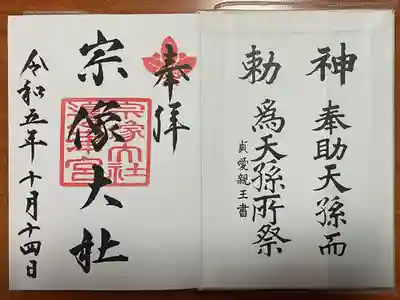 神 奉助天孫而
勅 爲天孫所祭
貞愛親王書
奉拝
宗像大社
宗像大社
津宮
令和五年十月十四日